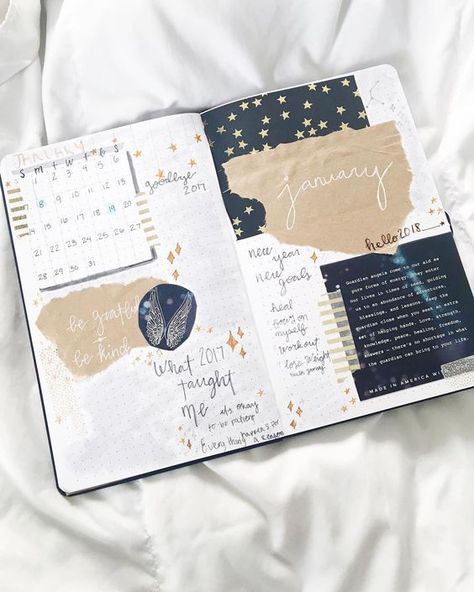 JANUARY
S M T W T F S
1 2 3 4 5 6
7 8 9 10 11 12 13
14 15 16 17 18 19 20
21 22 23 24 25 26 27
28 29 30 31
goodbye
2017
be grateful
be kind
What 2017
taught
Me its okay
to be patient
Everything happens for
a season
january
hello 2018
new year
new goals
heal
focus on
myself
workout
lose weight
Guardian angels come to our aid as
pure forms of energy. They enter
our lives in times of need, guiding
us to an abundance of adventures,
blessings, and lessons. Keep the
guardian close when you want an extra
set of helping hands. Inner strength,
knowledge, peace, healing, freedom,
answers - there's no shortage to what
the guardian can bring to your life.
MADE IN AMERICA WITH